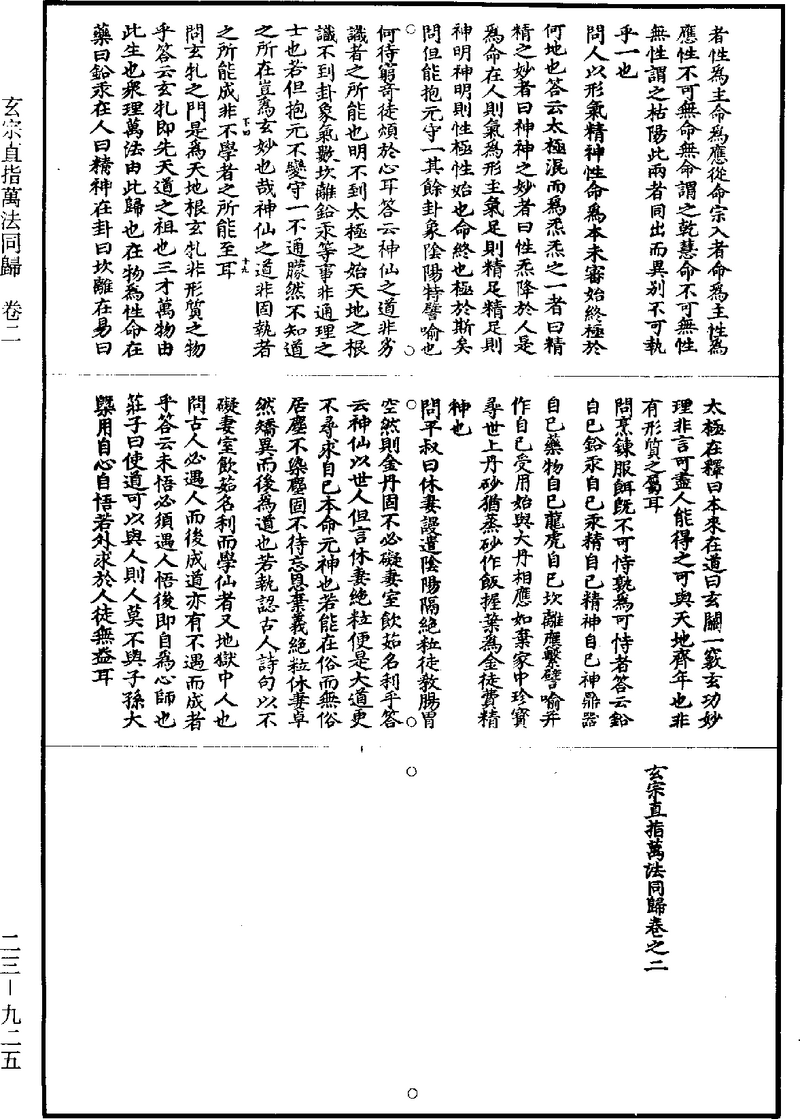 者性爲主命爲應從命宗入者命爲主性爲
應性不可無命無命謂之乾慧命不可無性
無性謂之枯陽此兩者同出而異别不可執
乎一也
問人以形氣精神性命爲本未審始終極於
何地也答云太極混而爲炁炁之一者曰精
精之妙者曰神神之妙者曰性炁降於人是
爲命在人則氣爲形主氣足則精足精足則
神明神明則性極性始也命終也極於斯矣
問但能抱元守一其餘卦象陰陽特譬喻也
何待窮奇徒煩於心耳答云神仙之道非劣
識者之所能也明不到太極之始天地之根
識不到卦象氣數坎離鉛汞等事非通理之
士也若但抱元不變守一不通朦然不知道
之所在豈爲玄妙也哉神仙之道非固執者
之所能成非不學者之所能至耳
下四
十九
問玄牝之門是爲天地根玄牝非形質之物
乎答云玄牝即先天道之祖也三才萬物由
此生也衆理萬法由此歸也在物爲性命在
藥曰鉛汞在人曰精神在卦曰坎離在易曰
太極在釋曰本來在道曰玄關一竅玄功妙
理非言可盡人能得之可與天地齊年也非
有形質之屬耳
問烹鍊服餌既不可恃孰爲可恃者答云鉛
自己鉛汞自己汞精自己精神自己神鼎器
自己藥物自己龍虎自己坎離應繫譬喻并
作自己受用始與大丹相應如棄家中珍寳
尋世上丹砂猶蒸砂作飯握葉爲金徒費精
神也
問平叔曰休妻謾遣陰陽隔絶粒徒教腸胃
空然則金丹固不必礙妻室飲茹名利乎答
云神仙以世人但言休妻絶粒便是大道更
不尋求自己本命元神也若能在俗而無俗
居塵不染塵固不待忘恩棄義絶粒休妻卓
然矯異而後爲道也若執認古人詩句以不
礙妻室飲茹名利而學仙者又地獄中人也
問古人必遇人而後成道亦有不遇而成者
乎答云未悟必須遇人悟後即自爲心師也
莊子曰使道可以與人則人莫不與子孫大
槩用自心自悟若外求於人徒無益耳
玄宗直指萬法同歸卷之二
玄宗直指萬法同歸 卷二
二三－九二五